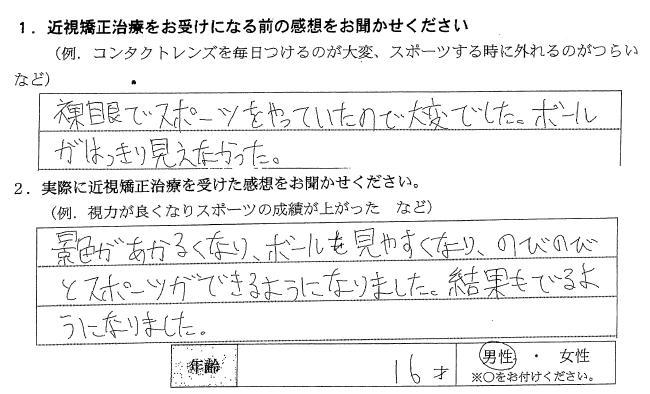 １．近視矯正治療をお受けになる前の感想をお聞かせください
（例．コンタクトレンズを毎日つけるのが大変、スポーツする時に外れるのがつらい
など）
裸眼でスポーツをやっていたので大変でした。ボール
がはっきり見えなかった。
２．実際に近視矯正治療を受けた感想をお聞かせください。
（例．視力が良くなりスポーツの成績が上がった　など）
景色があかるくなり、ボールも見やすくなり、のびのび
とスポーツができるようになりました。結果もでるよ
うになりました。
年齢 16才 男性 ・ 女性
※○をお付けください。